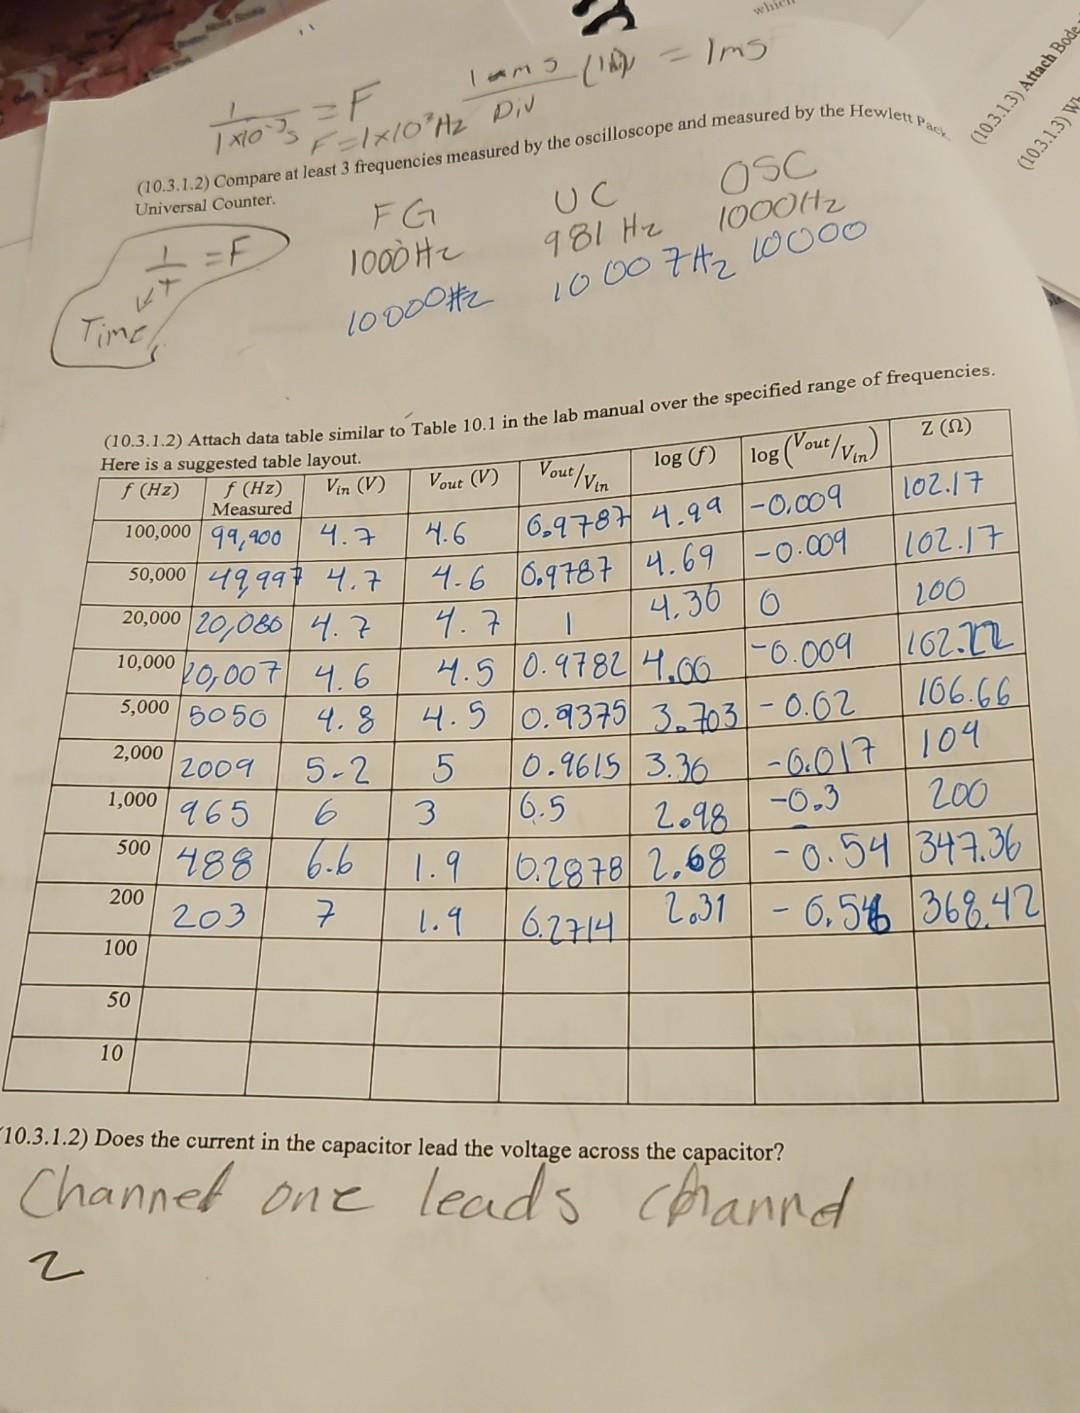 which
(10.3.1.3) Attach Bode
(10.3.1.3) Wh
1/1x10⁻³s = F
F = 1x10³Hz
ms/Div = 1ms
(10.3.1.2) Compare at least 3 frequencies measured by the oscilloscope and measured by the Hewlett Pack
Universal Counter.
FG UC OSC
1000Hz 981 Hz 1000Hz
10000Hz 10007Hz 10000
1/T = F
Time
(10.3.1.2) Attach data table similar to Table 10.1 in the lab manual over the specified range of frequencies.
Here is a suggested table layout.
f (Hz) f (Hz) Measured Vin (V) Vout (V) Vout/Vin log (f) log (Vout/Vin) Z (Ω)
100,000 99,900 4.7 4.6 0.9787 4.99 -0.009 102.17
50,000 49,997 4.7 4.6 0.9787 4.69 -0.009 102.17
20,000 20,080 4.7 4.7 1 4.30 0 100
10,000 10,007 4.6 4.5 0.9782 4.00 -0.009 102.22
5,000 5050 4.8 4.5 0.9375 3.703 -0.02 106.66
2,000 2009 5.2 5 0.9615 3.30 -0.017 104
1,000 965 6 3 0.5 2.98 -0.3 200
500 488 6.6 1.9 0.2878 2.68 -0.54 347.36
200 203 7 1.9 0.2714 2.31 -0.56 368.42
100
50
10
10.3.1.2) Does the current in the capacitor lead the voltage across the capacitor?
Channel one leads channel
2